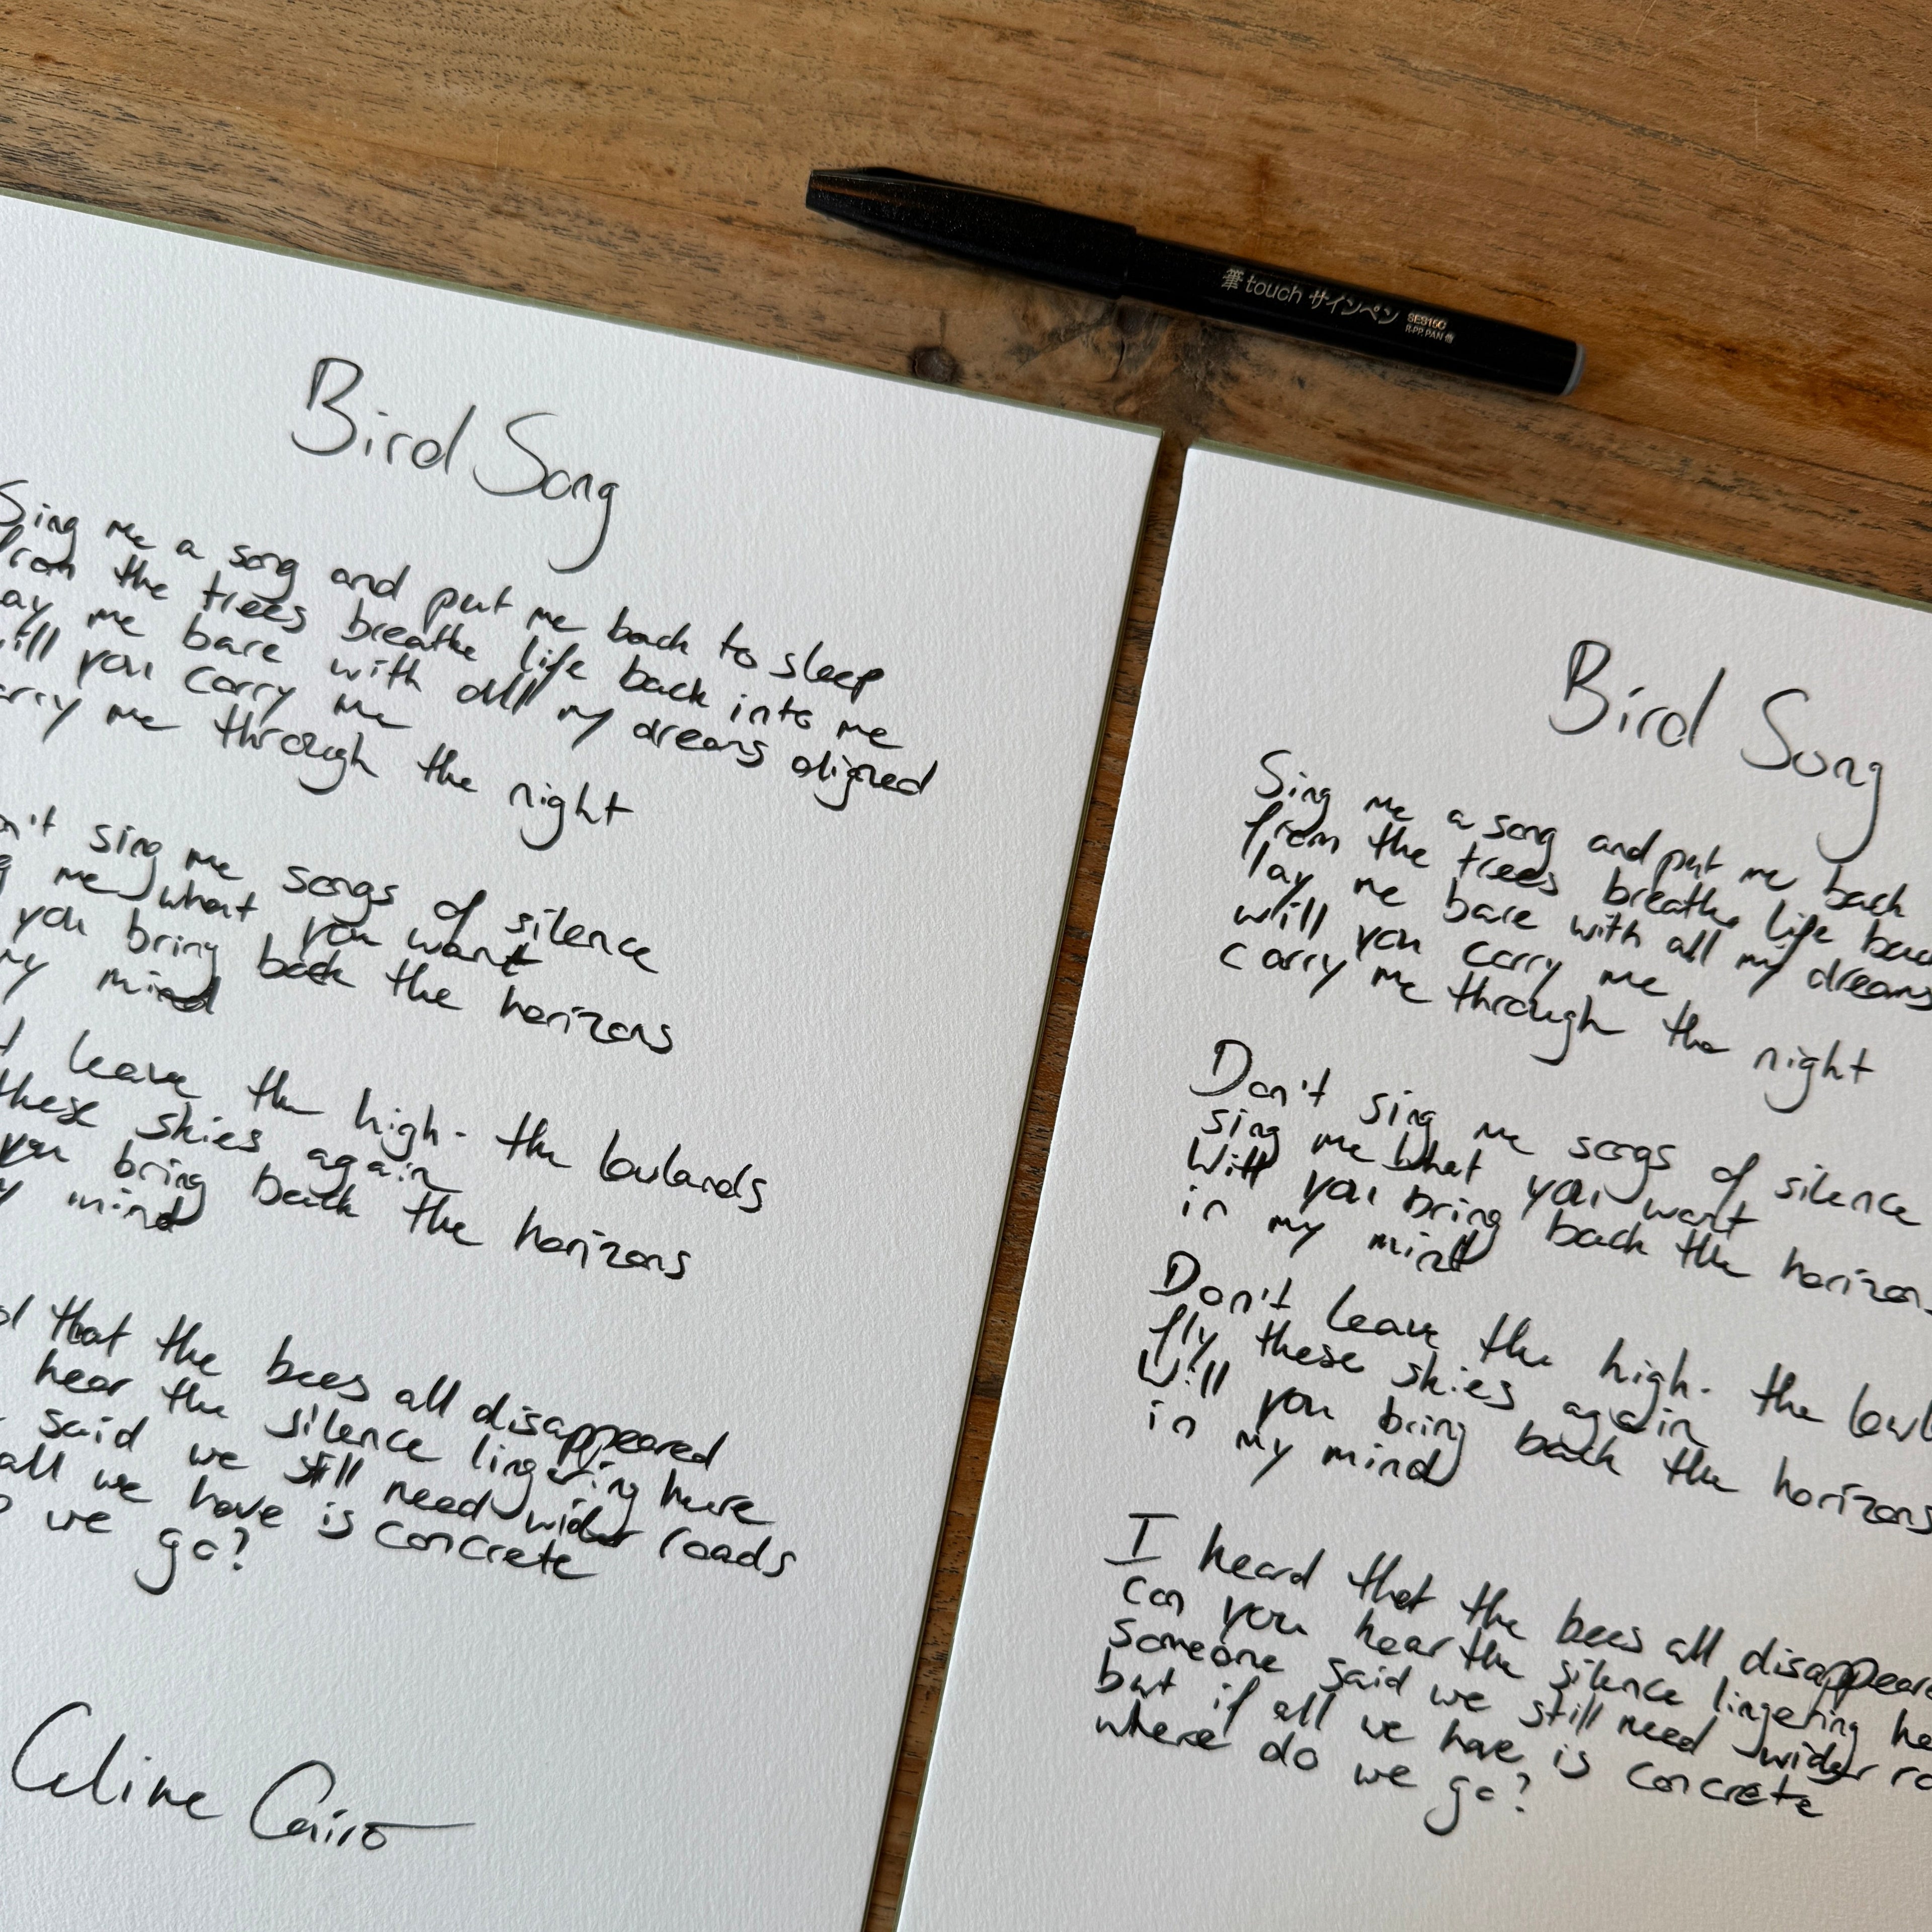 筆touch サインペン SES15C
R-PP. PAN
Bird Song
Sing me a song and put me back to sleep
from the trees breathe life back into me
ay me bare with all my dreams aligned
ill you carry me
arry me through the night
n't sing me songs of silence
g me what you want
you bring back the horizons
my mind
t leave the high- the lowlands
these skies again
you bring back the horizons
y mind
d that the bees all disappeared
hear the silence lingering here
said we still need wider roads
all we have is concrete
o we go?
Celine Cairo
Bird Song
Sing me a song and put me back
from the trees breathe life back
lay me bare with all my dreams
will you carry me
carry me through the night
Don't sing me songs of silence
sing me what you want
Will you bring back the horizons
in my mind
Don't leave the high- the lowl
fly these skies again
Will you bring back the horizons
in my mind
I heard that the bees all disappeare
can you hear the silence lingering he
someone said we still need wider ro
but if all we have is concrete
where do we go?